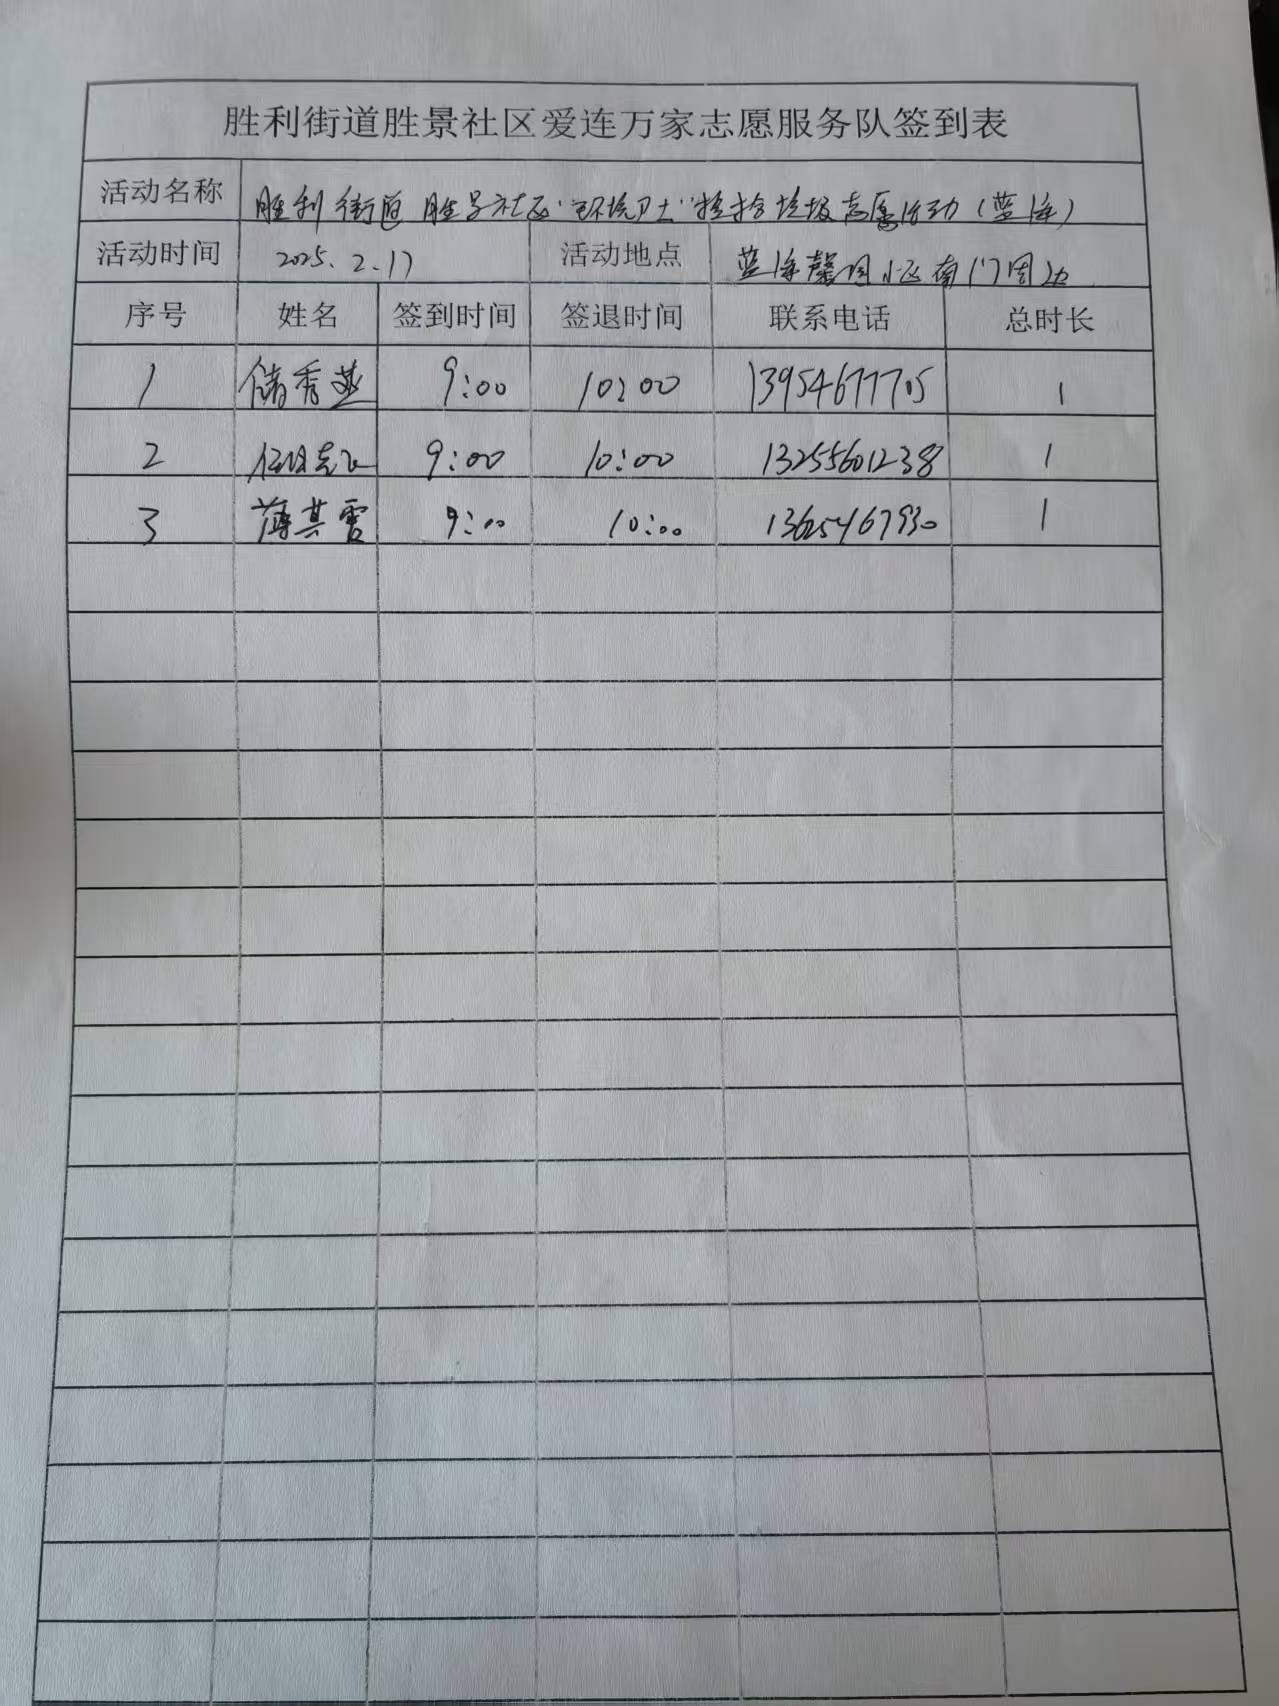 胜利街道胜景社区爱连万家志愿服务队签到表
活动名称 胜利街道胜景社区"环境卫士"捡拾垃圾志愿活动(蓝海)
活动时间 2025.2.17 活动地点 蓝海馨园小区南门周边
序号 姓名 签到时间 签退时间 联系电话 总时长
1 储秀燕 9:00 10:00 13954677705 1
2 9:00 10:00 13255601238 1
3 薄其雪 9:00 10:00 13625467930 1